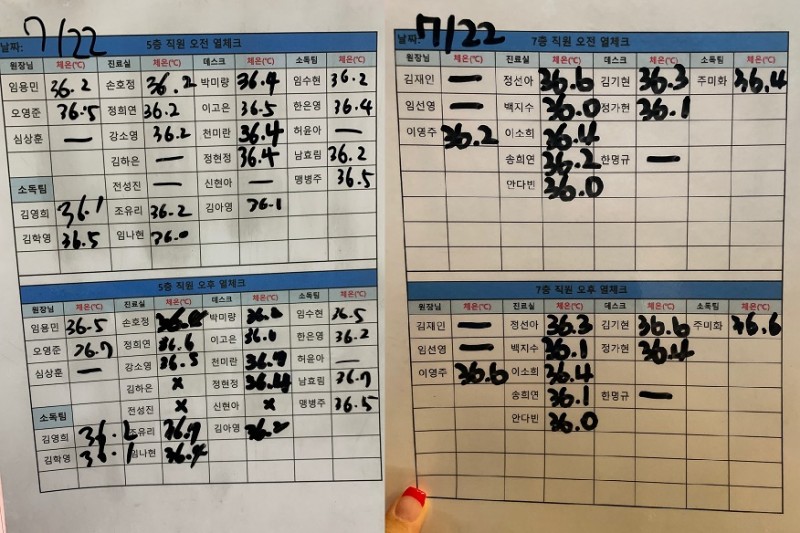 날짜: 7/22 5층 직원 오전 열체크
원장님 체온(℃) 진료실 체온(℃) 데스크 체온(℃) 소독팀 체온(℃)
임용민 36.2 손호정 36.2 박미량 36.4 임수현 36.2
오영준 36.5 정희연 36.2 이고은 36.5 한은영 36.4
심상훈 — 강소영 36.2 천미란 36.4 허윤아 —
김하은 — 정현정 36.4 남효림 36.2
소독팀 전성진 — 신현아 — 맹병주 36.5
김영희 36.1 조유리 36.2 김아영 36.1
김학영 36.5 임나현 36.0
5층 직원 오후 열체크
원장님 체온(℃) 진료실 체온(℃) 데스크 체온(℃) 소독팀 체온(℃)
임용민 36.5 손호정 박미량 임수현 36.5
오영준 36.7 정희연 36.6 이고은 한은영 36.2
심상훈 — 강소영 36.5 천미란 허윤아 —
김하은 x 정현정 36.4 남효림 36.7
소독팀 전성진 x 신현아 x 맹병주 36.5
김영희 조유리 36.7 김아영 36.2
김학영 36.1 임나현
날짜: 7/22 7층 직원 오전 열체크
원장님 체온(℃) 진료실 체온(℃) 데스크 체온(℃) 소독팀 체온(℃)
김재인 — 정선아 36.6 김기현 36.3 주미화 36.4
임선영 — 백지수 36.0 정가현 36.1
이영주 36.2 이소희 36.4
송희연 36.2 한명규 —
안다빈 36.0
7층 직원 오후 열체크
원장님 체온(℃) 진료실 체온(℃) 데스크 체온(℃) 소독팀 체온(℃)
김재인 — 정선아 36.3 김기현 36.6 주미화 36.6
임선영 — 백지수 36.1 정가현 36.4
이영주 36.6 이소희 36.4
송희연 36.1 한명규 —
안다빈 36.0